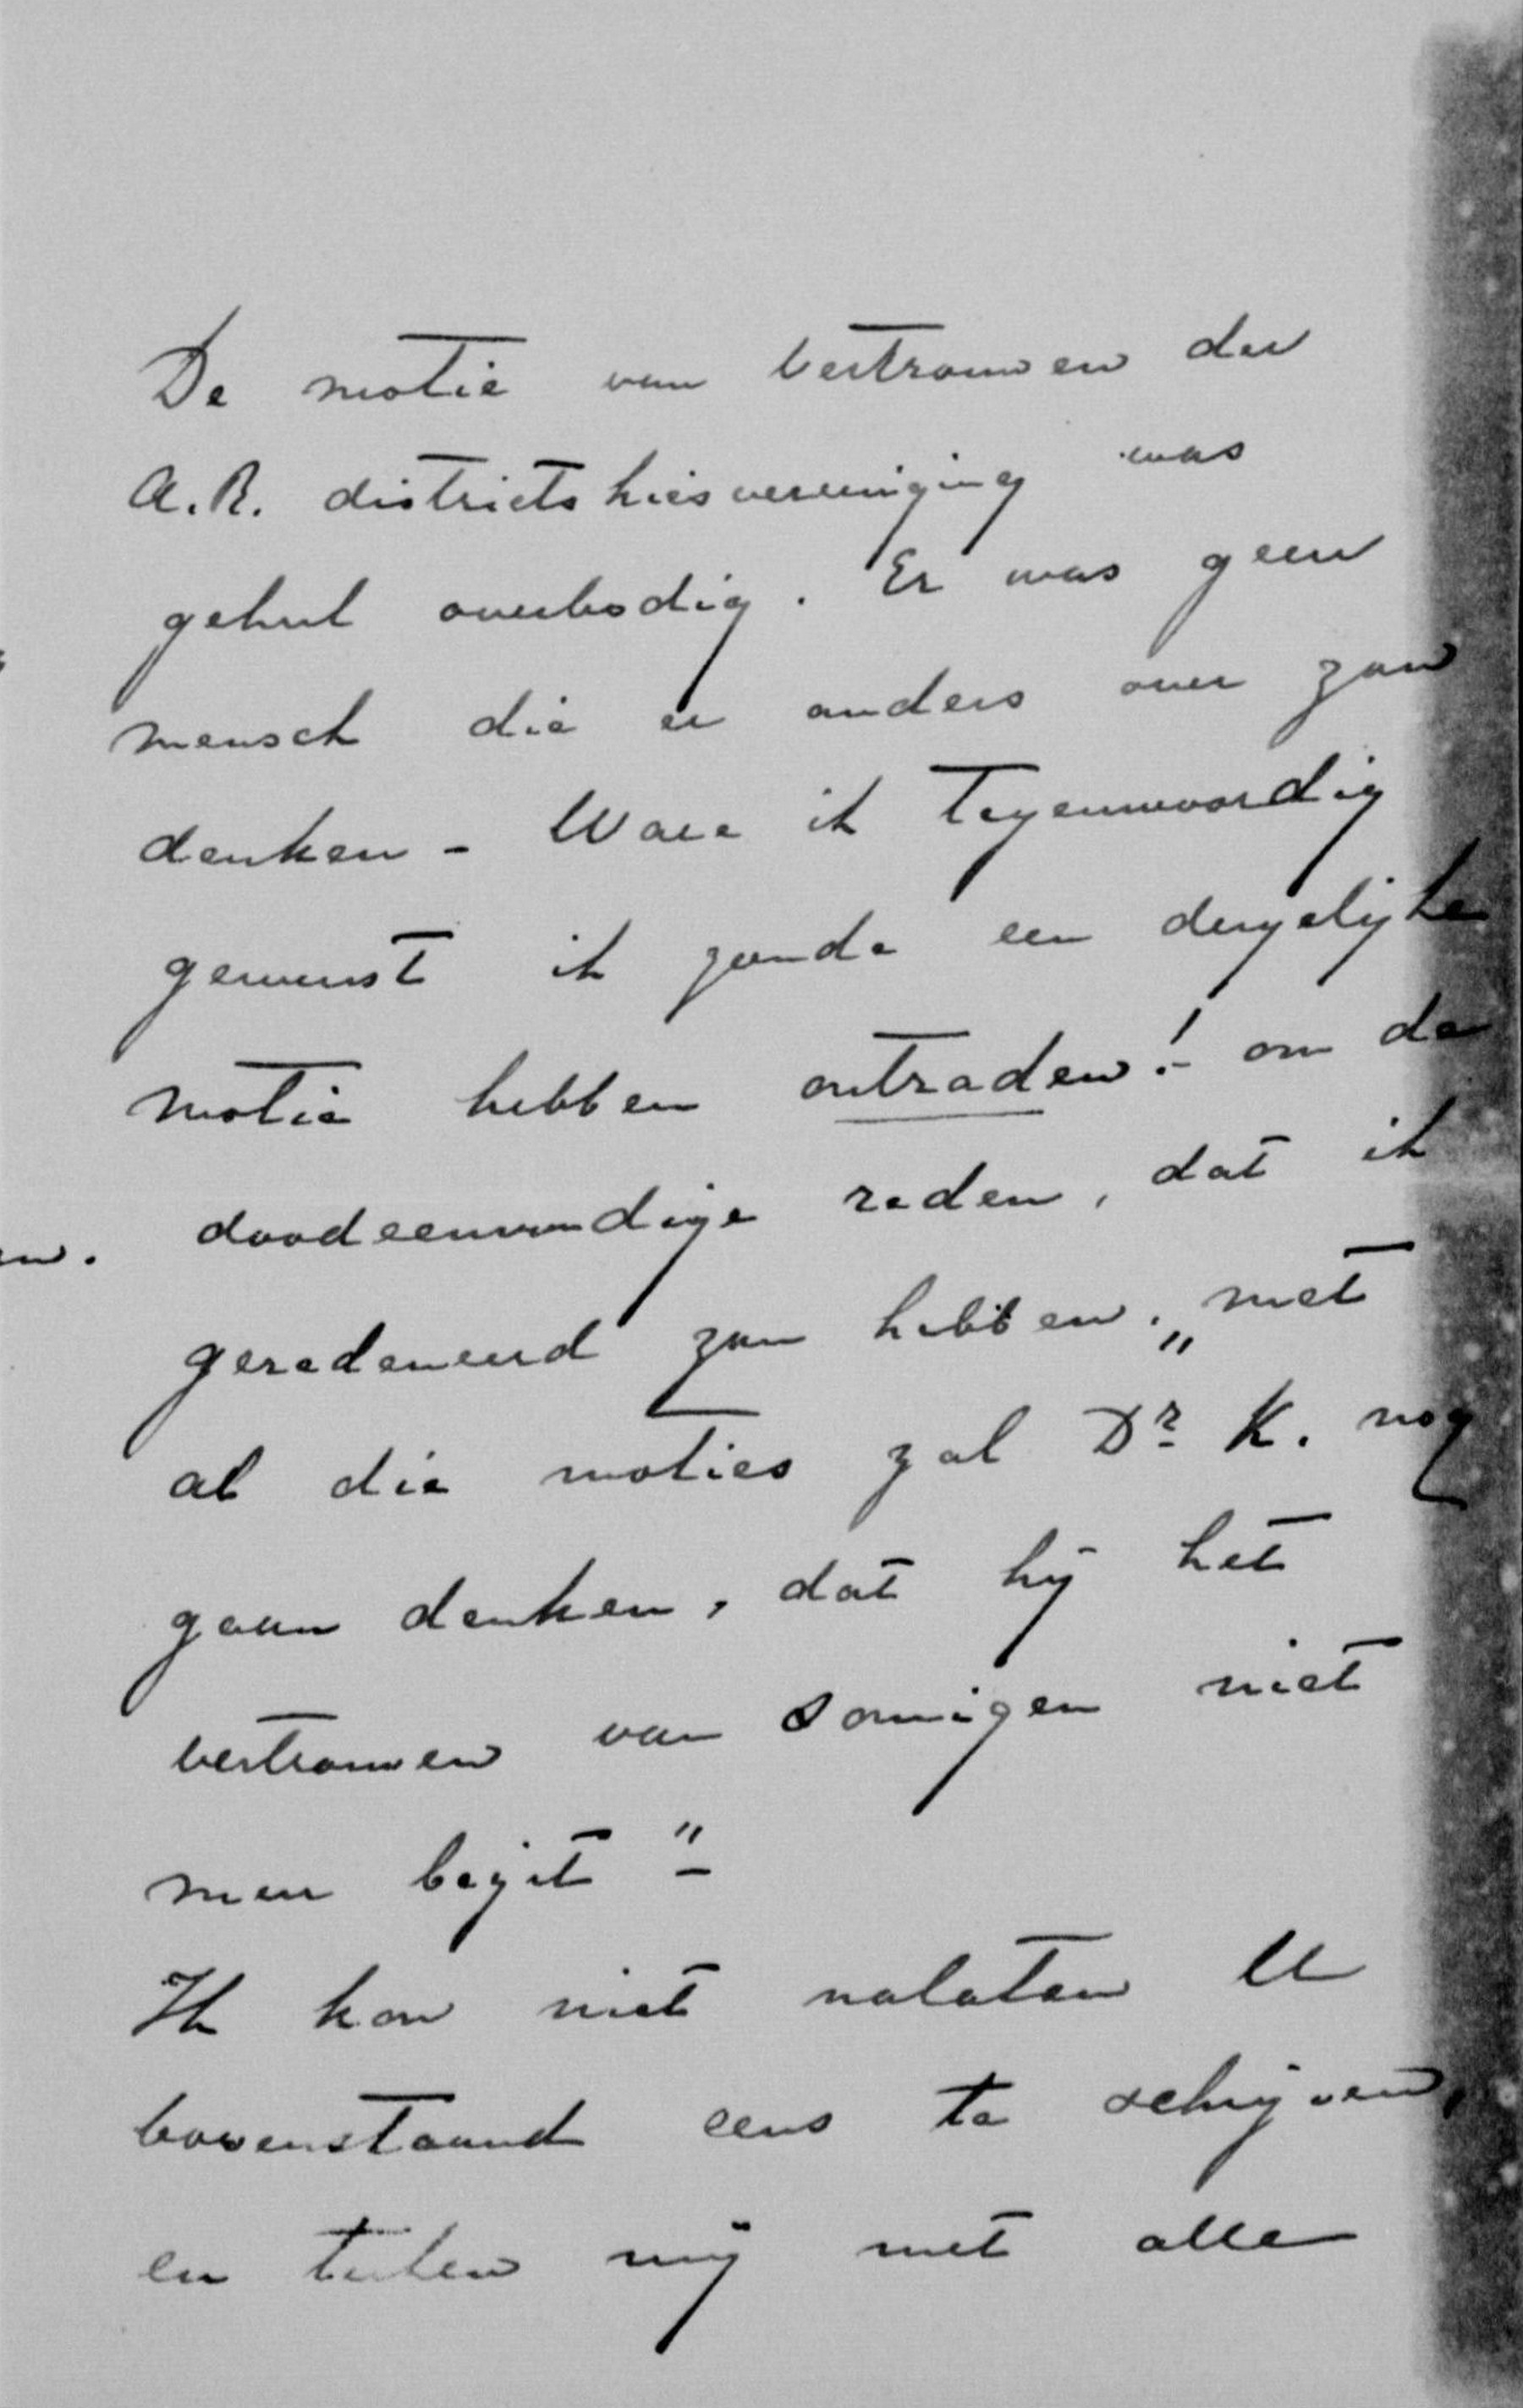 De motie van vertrouwen der
A.R. districtskiesvereeniging was
geheel overbodig. Er was geen
mensch die er anders over zou
denken - Ware ik tegenwoordig
geweest ik zoude een dergelijke
motie hebben ontraden! - om de
doodeenvoudige reden, dat ik
geredeneerd zou hebben. „met
al die moties zal Dr K. nog
gaan denken, dat hij het
vertrouwen van somigen niet
meer bezit" -
Ik kon niet nalaten U
bovenstaand eens te schrijven,
en teeken mij met alle